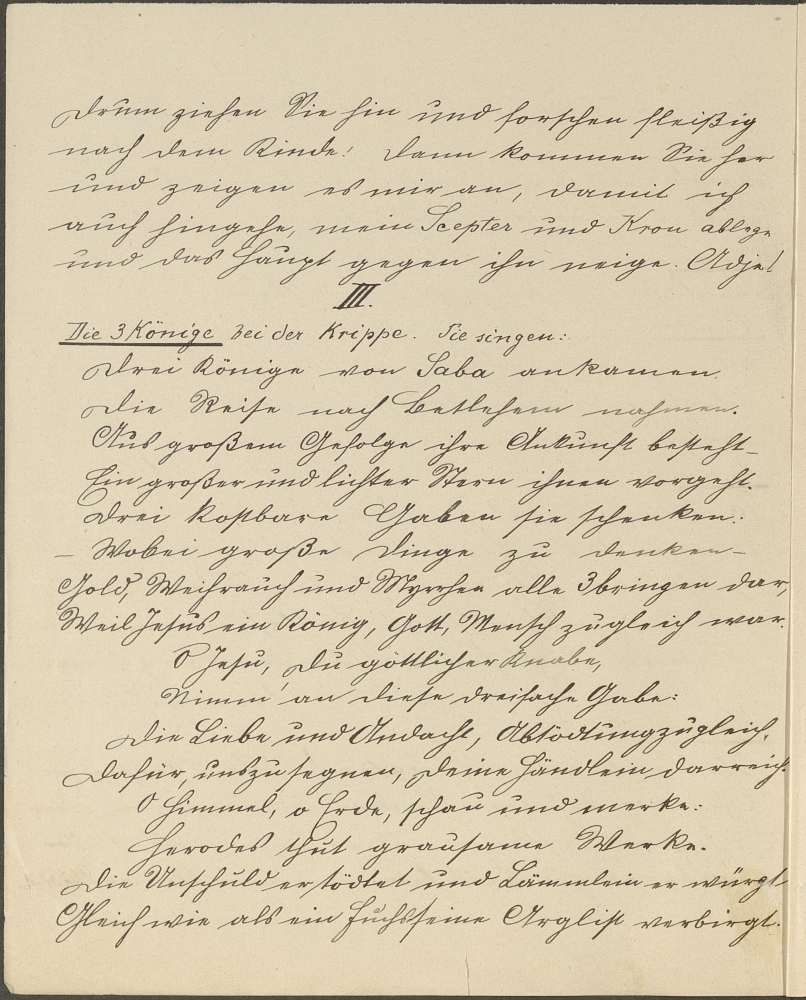 Drum ziehen Sie hin und forschen fleißig
nach dem Kinde! Dann kommen Sie her
und zeigen es mir an, damit ich
auch hingehe, mein Scepter und Kron ablege
und das Haupt gegen ihn neige. Adje!
III.
Die 3 Könige bei der Krippe. Sie singen:
Drei Könige von Saba ankamen
Die Reise nach Betlehem nahmen.
Aus großem Gefolge ihre Ankunft besteht –
Ein großer und lichter Stern ihnen vorgeht.
Drei kostbare Gaben sie schenken:
– Wobei große Dinge zu denken –
Gold, Weihrauch und Myrrhen alle 3 bringen dar,
Weil Jesus ein König, Gott, Mensch zugleich war.
O Jesu, Du göttlicher Knabe,
Nimm an diese dreifache Gabe:
Die Liebe und Andacht, Abtödtung zugleich,
Dafür, uns zu segnen, Deine Händlein darreich.
O Himmel, o Erde, schau und merke:
Herodes thut grausame Werke.
Die Unschuld er tödtet und Lämmlein er würgt
Gleich wie als ein Fuchs seine Arglist verbirgt.